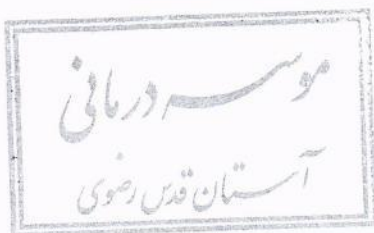 موسسه درمانی
آستان قدس رضوی